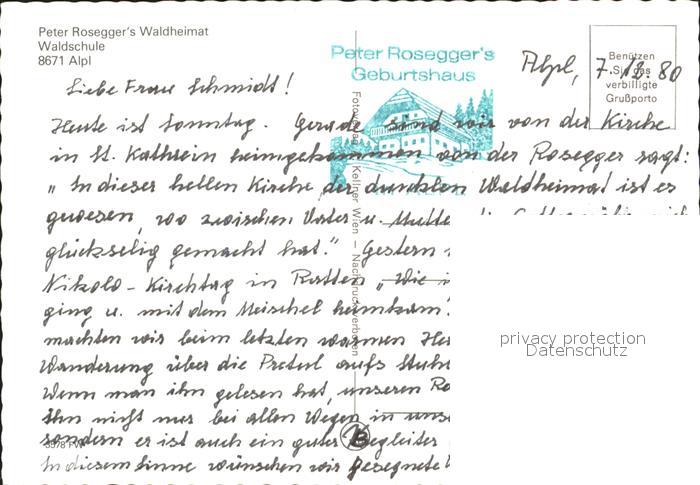 Peter Rosegger's Waldheimat
Waldschule
8671 Alpl
Peter Rosegger's
Geburtshaus
Benützen
Sie das
verbilligte
Grußporto
Alpl, 7. 12. 80
Liebe Frau Schmidt!
Heute ist Sonntag. Gerade sind wir von der Kirche
in St. Kathrein heimgekommen von der Rosegger sagt:
"In dieser hellen Kirche der dunklen Waldheimat ist es
gewesen, wo zwischen Vater u. Mutter
glückselig gemacht hat." Gestern
Nikolo-Kirchtag in Ratten "Wie
ging u. mit dem Meischel heimkam.
machten wir beim letzten warmen
Wanderung über die Pretul aufs
Wenn man ihn gelesen hat, unseren Ro
ihn nicht nur bei allen Wegen in uns
sondern er ist auch ein guter Begleiter
In diesem Sinne wünschen wir gesegnete
Kellner Wien - Nachdruck verboten
privacy protection
Datenschutz